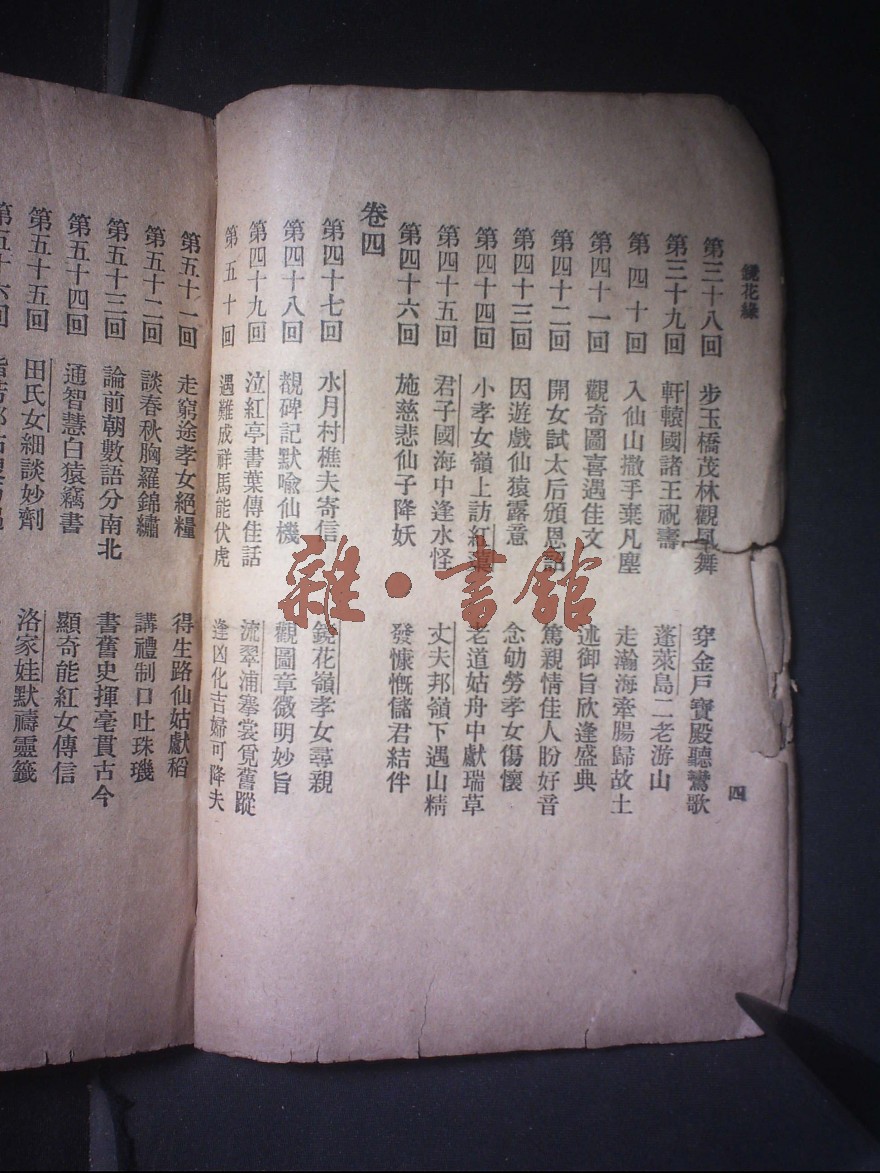 鏡花緣
四
第三十八回 步玉橋茂林觀鳳舞 穿金戶寶殿聽鸞歌
第三十九回 軒轅國諸王祝壽 蓬萊島二老游山
第四十回 入仙山撒手棄凡塵 走瀚海牽腸歸故土
第四十一回 觀奇圖喜遇佳文 述御旨欣逢盛典
第四十二回 開女試太后頒恩詔 篤親情佳人盼好音
第四十三回 因遊戲仙猿露意 念劬勞孝女傷懷
第四十四回 小孝女嶺上訪紅蕖 老道姑舟中獻瑞草
第四十五回 君子國海中逢水怪 丈夫邦嶺下遇山精
第四十六回 施慈悲仙子降妖 發慷慨儲君結伴
卷四
第四十七回 水月村樵夫寄信 鏡花嶺孝女尋親
第四十八回 覩碑記默喻仙機 觀圖章微明妙旨
第四十九回 泣紅亭書葉傳佳話 流翠浦搴裳覓舊蹤
第五十回 遇難成祥馬能伏虎 逢凶化吉婦可降夫
第五十一回 走窮途孝女絕糧 得生路仙姑獻稻
第五十二回 談春秋胸羅錦繡 講禮制口吐珠璣
第五十三回 論前朝數語分南北 書舊史揮毫貫古今
第五十四回 通智慧白猿竊書 顯奇能紅女傳信
第五十五回 田氏女細談妙劑 洛家娃默禱靈籤
第五十六回
雜·書館